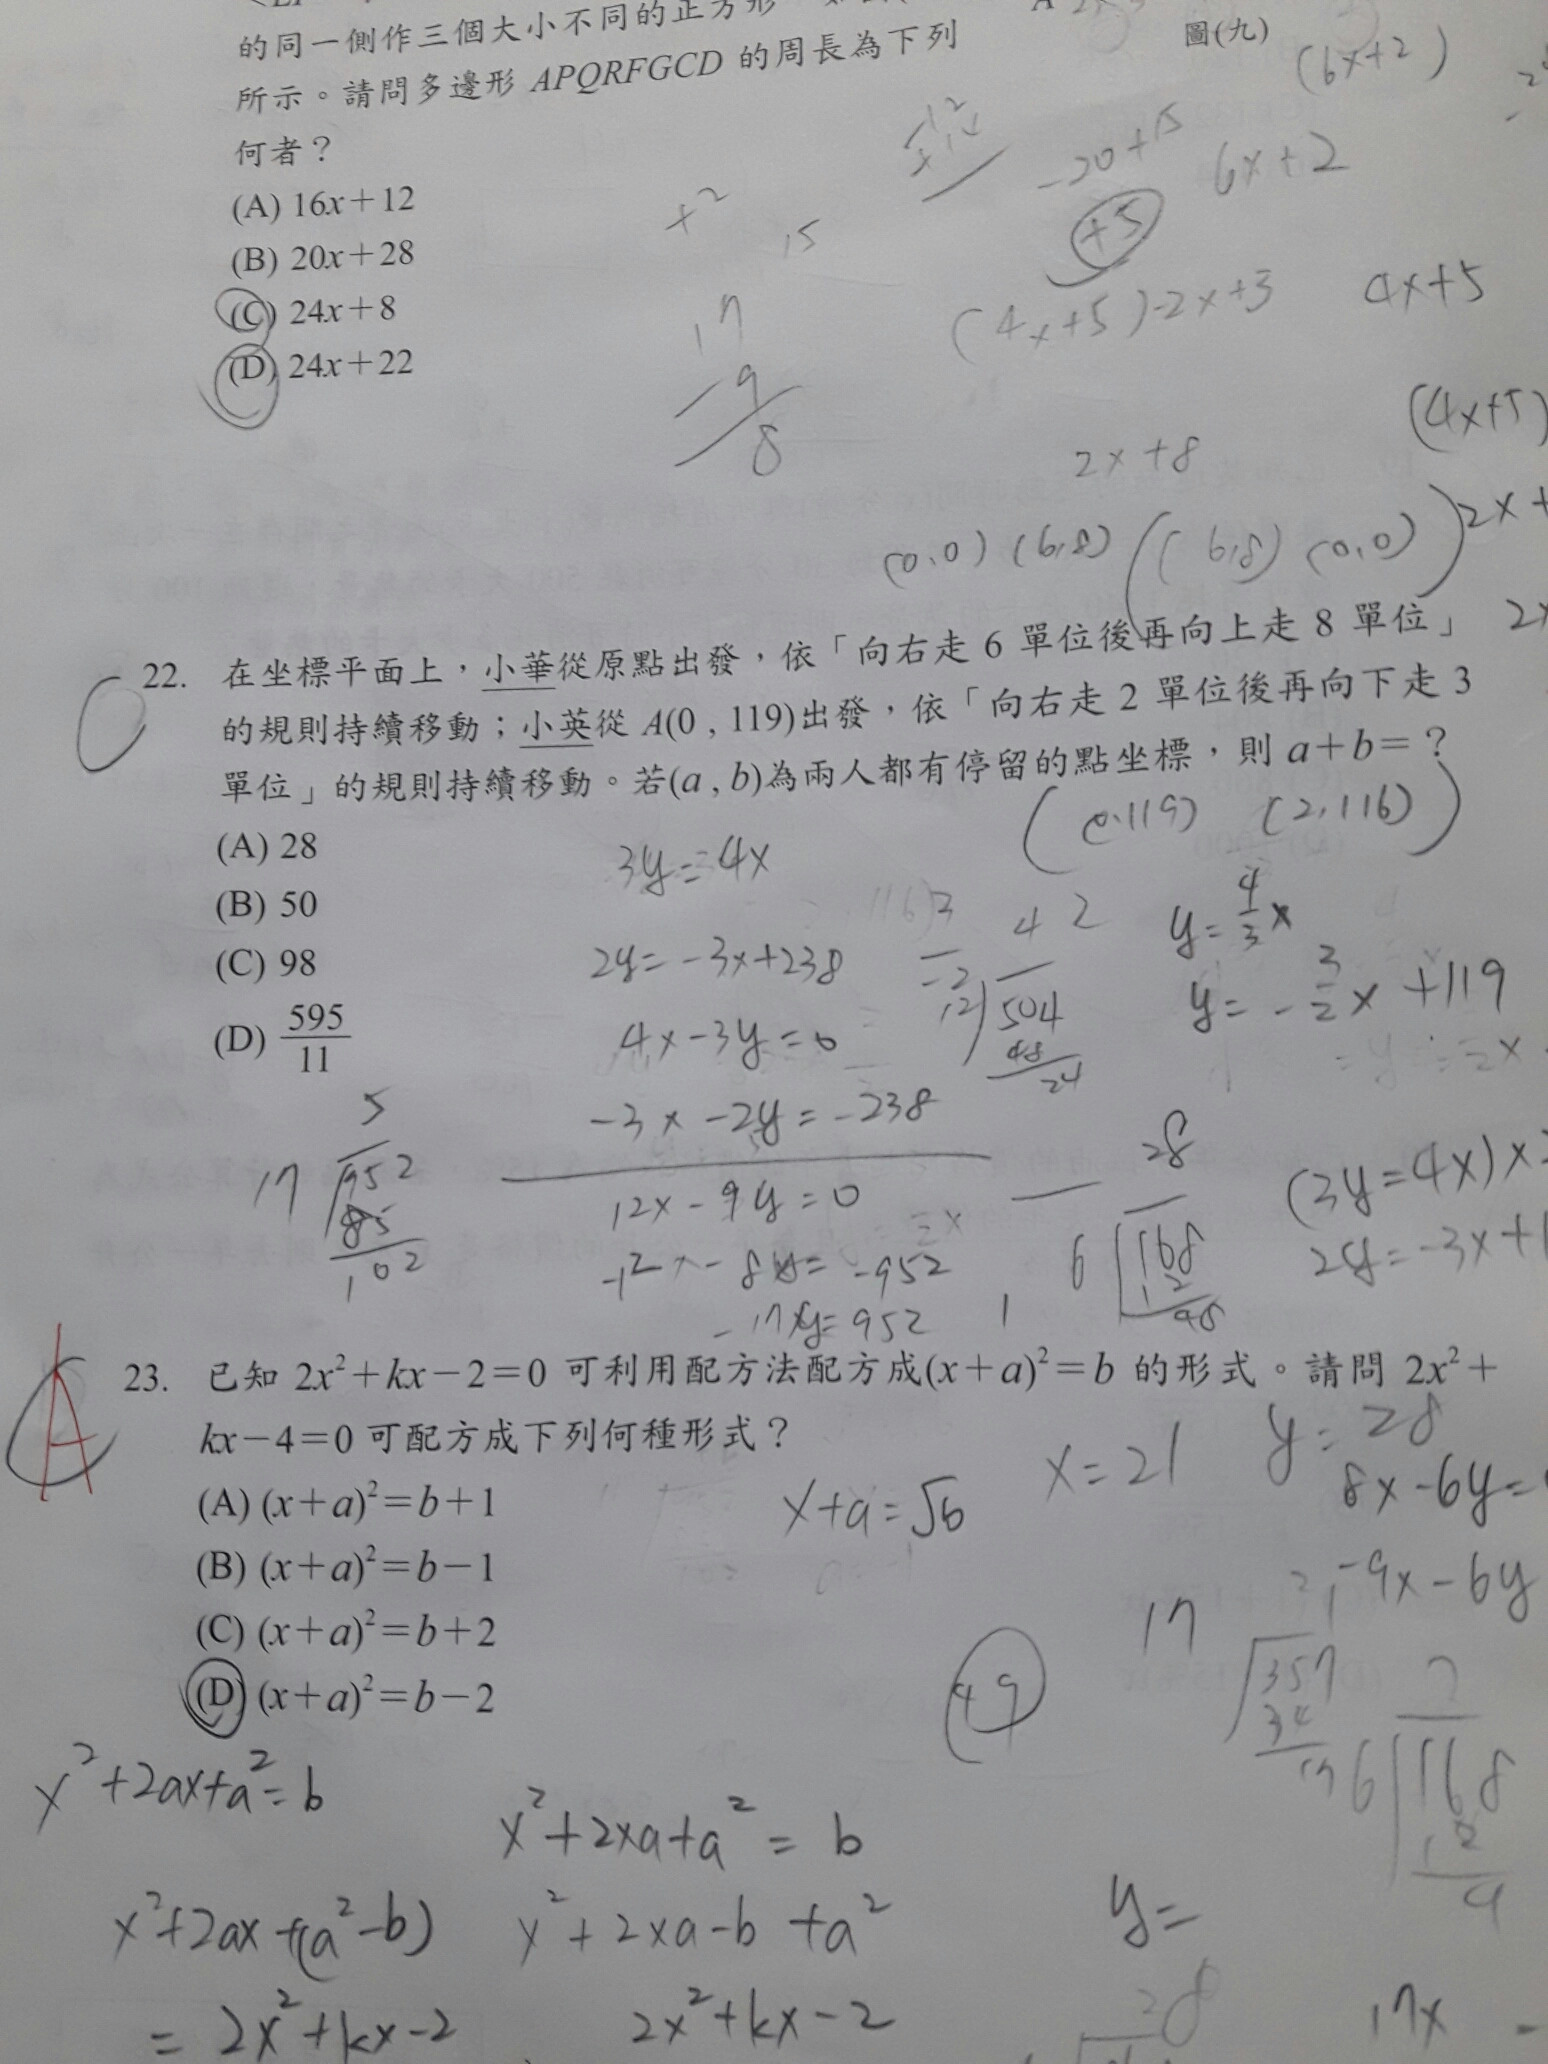 的同一側作三個大小不同的正方形
圖(九)
(6x+2)
所示。請問多邊形 APQRFGCD 的周長為下列
何者？
-20+15
6x+2
(A) 16x+12
x²
15
+5
(B) 20x+28
(C) 24x+8
17
(4x+5)-2x+3
4x+5
(D) 24x+22
-9
8
(4x+5)
2x+8
(0,0) (6,8) ((6,8) (0,0))
2x+
22. 在坐標平面上，小華從原點出發，依「向右走 6 單位後再向上走 8 單位」
的規則持續移動；小英從 A(0 , 119)出發，依「向右走 2 單位後再向下走 3
單位」的規則持續移動。若(a , b)為兩人都有停留的點坐標，則 a+b=？
((0,119) (2,116))
(A) 28
3y=4x
(B) 50
42
y=4/3x
(C) 98
2y=-3x+238
12 504
y=-3/2x+119
(D) 595/11
4x-3y=0
48
24
5
-3x-2y=-238
28
17 952
12x-9y=0
(3y=4x)×
85
6 168
102
-12x-8y=-952
12
2y=-3x+
-17y=952
48
A
23. 已知 2x²+kx-2=0 可利用配方法配方成(x+a)²=b 的形式。請問 2x²+
kx-4=0 可配方成下列何種形式？
x=21
y=28
(A) (x+a)²=b+1
x+a=√b
8x-6y=
(B) (x+a)²=b-1
-9x-6y
(C) (x+a)²=b+2
17 357
49
34
(D) (x+a)²=b-2
17
6 168
x²+2ax+a²=b
x²+2xa+a²=b
12
4
x²+2ax+(a²-b)
x²+2xa-b+a²
y=
=2x²+kx-2
2x²+kx-2
28
17x